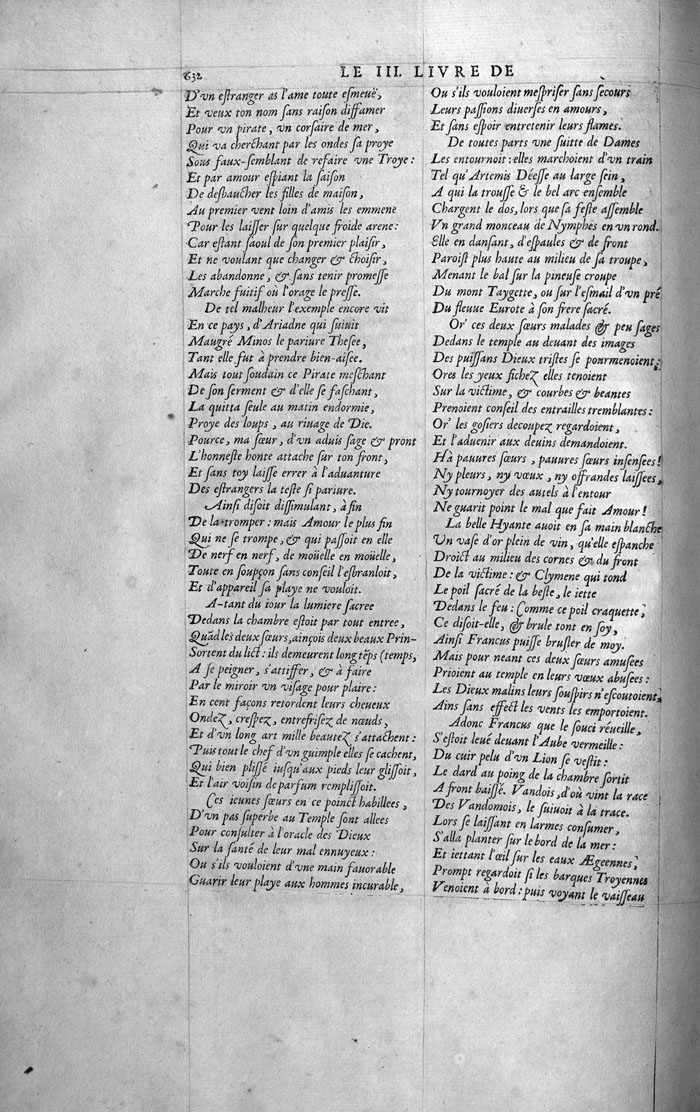 632
LE III. LIVRE DE
D'vn eſtranger as l'ame toute eſmeuë,
Et veux ton nom ſans raiſon diffamer
Pour vn pirate, vn corſaire de mer,
Qui va cherchant par les ondes ſa proye
Sous faux-ſemblant de refaire vne Troye:
Et par amour eſpiant la ſaiſon
De deſbaucher les filles de maiſon,
Au premier vent loin d'amis les emmene
Pour les laiſſer ſur quelque froide arene:
Car eſtant ſaoul de ſon premier plaiſir,
Et ne voulant que changer & choiſir,
Les abandonne, & ſans tenir promeſſe
Marche fuitif où l'orage le preſſe.
De tel malheur l'exemple encore vit
En ce pays, d'Ariadne qui ſuiuit
Maugré Minos le pariure Theſee,
Tant elle fut à prendre bien-aiſee.
Mais tout ſoudain ce Pirate meſchant
De ſon ſerment & d'elle ſe faſchant,
La quitta ſeule au matin endormie,
Proye des loups, au riuage de Die.
Pource, ma ſœur, d'vn aduis ſage & pront
L'honneſte honte attache ſur ton front,
Et ſans toy laiſſe errer à l'aduanture
Des eſtrangers la teſte ſi pariure.
Ainſi diſoit diſſimulant, à fin
De la tromper: mais Amour le plus fin
Qui ne ſe trompe, & qui paſſoit en elle
De nerf en nerf, de moüelle en moüelle,
Toute en ſoupçon ſans conſeil l'eſbranloit,
Et d'appareil ſa playe ne vouloit.
A-tant du iour la lumiere ſacree
Dedans la chambre eſtoit par tout entree,
Quãd les deux ſœurs, ainçois deux beaux Prin-
Sortent du lict: ils demeurent long tẽps (temps,
A ſe peigner, s'attiffer, & à faire
Par le miroir vn viſage pour plaire:
En cent façons retordent leurs cheueux
Ondez, creſpez, entrefriſez de nœuds,
Et d'vn long art mille beautez s'attachent:
Puis tout le chef d'vn guimple elles ſe cachent,
Qui bien pliſſé iuſqu'aux pieds leur gliſſoit,
Et l'air voiſin de parfum rempliſſoit.
Ces ieunes ſœurs en ce poinct habillees,
D'vn pas ſuperbe au Temple ſont allees
Pour conſulter à l'oracle des Dieux
Sur la ſanté de leur mal ennuyeux:
Ou s'ils vouloient d'vne main fauorable
Guarir leur playe aux hommes incurable,
Ou s'ils vouloient meſpriſer ſans ſecours
Leurs paſſions diuerſes en amours,
Et ſans eſpoir entretenir leurs flames.
De toutes parts vne ſuitte de Dames
Les entournoit: elles marchoient d'vn train
Tel qu'Artemis Déeſſe au large ſein,
A qui la trouſſe & le bel arc enſemble
Chargent le dos, lors que ſa feſte aſſemble
Vn grand monceau de Nymphes en vn rond.
Elle en danſant, d'eſpaules & de front
Paroiſt plus haute au milieu de ſa troupe,
Menant le bal ſur la pineuſe croupe
Du mont Taygette, ou ſur l'eſmail d'vn pré
Du fleuue Eurote à ſon frere ſacré.
Or' ces deux ſœurs malades & peu ſages
Dedans le temple au deuant des images
Des puiſſans Dieux triſtes ſe pourmenoient;
Ores les yeux fichez elles tenoient
Sur la victime, & courbes & beantes
Prenoient conſeil des entrailles tremblantes:
Or' les goſiers decoupez regardoient,
Et l'aduenir aux deuins demandoient.
Hà pauures ſœurs, pauures ſœurs inſenſees!
Ny pleurs, ny vœux, ny offrandes laiſſees,
Ny tournoyer des autels à l'entour
Ne guarit point le mal que fait Amour!
La belle Hyante auoit en ſa main blanche
Vn vaſe d'or plein de vin, qu'elle eſpanche
Droict au milieu des cornes & du front
De la victime: & Clymene qui tond
Le poil ſacré de la beſte, le iette
Dedans le feu: Comme ce poil craquette,
Ce diſoit-elle, & brule tout en ſoy,
Ainſi Francus puiſſe bruſler de moy.
Mais pour neant ces deux ſœurs amuſees
Prioient au temple en leurs vœux abuſees:
Les Dieux malins leurs ſouſpirs n'eſcoutoient,
Ains ſans effect les vents les emportoient.
Adonc Francus que le ſouci réueille,
S'eſtoit leué deuant l'Aube vermeille:
Du cuir pelu d'vn Lion ſe veſtit:
Le dard au poing de la chambre ſortit
A front baiſſé. Vandois, d'où vint la race
Des Vandomois, le ſuiuoit à la trace.
Lors ſe laiſſant en larmes conſumer,
S'alla planter ſur le bord de la mer:
Et iettant l'œil ſur les eaux Ægeennes,
Prompt regardoit ſi les barques Troyennes
Venoient à bord: puis voyant le vaiſſeau